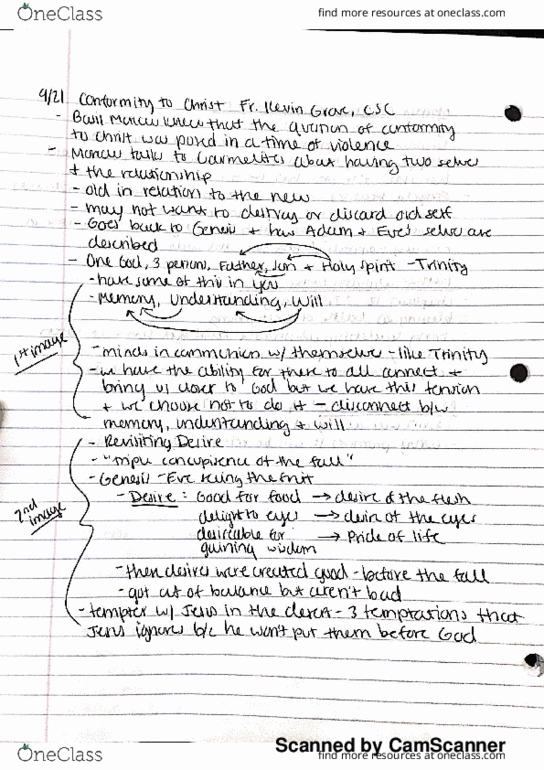 OneClass
find more resources at oneclass.com
9/21 Conformity to Christ Fr. Kevin Grove, CSC
- Basil Moreau knew that the question of conformity
to Christ was posed in a time of violence
- Moreau talks to Carmelites about having two selves
+ the relationship
- old in relation to the new
- may not want to destroy or discard old self
- Goes back to Genesis + how Adam + Eve's selves are
described
- One God, 3 person, Father, Son + Holy Spirit - Trinity
- have some of this in you
- Memory, Understanding, Will
1st image
- minds in communion w/ themselves - like Trinity
- we have the ability for these to all connect +
bring us closer to God but we have this tension
+ we choose not to do it - disconnect b/w
memory, understanding + will
- Revisiting Desire
- "triple concupiscence of the fall"
- Genesis - Eve seeing the fruit
2nd image
- Desire: Good for food → desire of the flesh
delight to eyes → desire of the eyes
desireable for → Pride of life
gaining wisdom
- then desires were created good - before the fall
- got out of balance but aren't bad
- tempter w/ Jesus in the desert - 3 temptations that
Jesus ignores b/c he won't put them before God
Scanned by CamScanner
OneClass
find more resources at oneclass.com